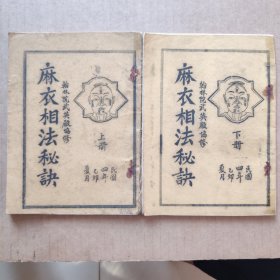 翰林院武英殿協修
麻衣相法秘訣
上册
民國
四年
乙卯
夏月
翰林院武英殿協修
麻衣相法秘訣
下册
民國
四年
乙卯
夏月